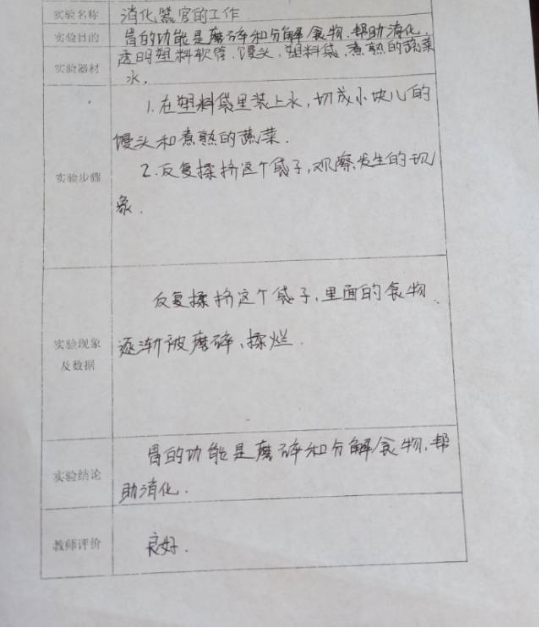 实验名称 消化器官的工作
实验目的 胃的功能是磨碎和分解食物,帮助消化。
实验器材 透明塑料软管、馒头、塑料袋、煮熟的蔬菜
水.
实验步骤
1.在塑料袋里装上水,切成小块儿的
馒头和煮熟的蔬菜.
2.反复揉挤这个袋子,观察发生的现
象.
实验现象
及数据
反复揉挤这个袋子,里面的食物
逐渐被磨碎、揉烂.
实验结论
胃的功能是磨碎和分解食物,帮
助消化.
教师评价 良好.